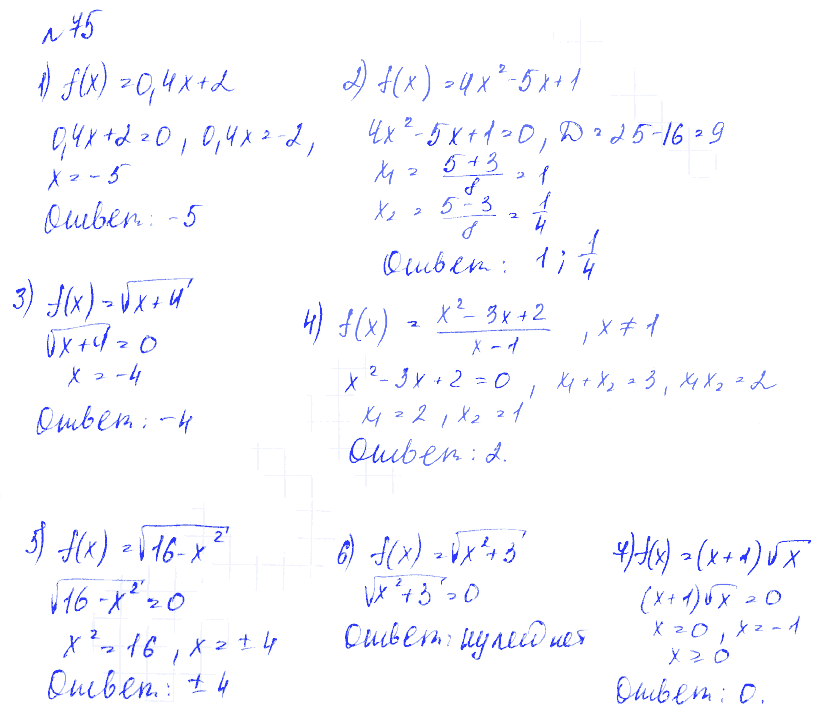 № 75
1) f(x) = 0,4x+2
0,4x+2=0, 0,4x=-2,
x = -5
Ответ: -5
2) f(x) = 4x²-5x+1
4x²-5x+1=0, D=25-16=9
x₁ = (5+3)/8 = 1
x₂ = (5-3)/8 = 1/4
Ответ: 1; 1/4
3) f(x) = √(x+4)
√(x+4) = 0
x = -4
Ответ: -4
4) f(x) = (x²-3x+2)/(x-1), x ≠ 1
x²-3x+2=0, x₁+x₂=3, x₁x₂=2
x₁=2, x₂=1
Ответ: 2.
5) f(x) = √(16-x²)
√(16-x²) = 0
x²=16, x=±4
Ответ: ±4
6) f(x) = √(x²+3)
√(x²+3) = 0
Ответ: нулей нет
7) f(x) = (x+1)√x
(x+1)√x = 0
x=0, x=-1
x ≥ 0
Ответ: 0.